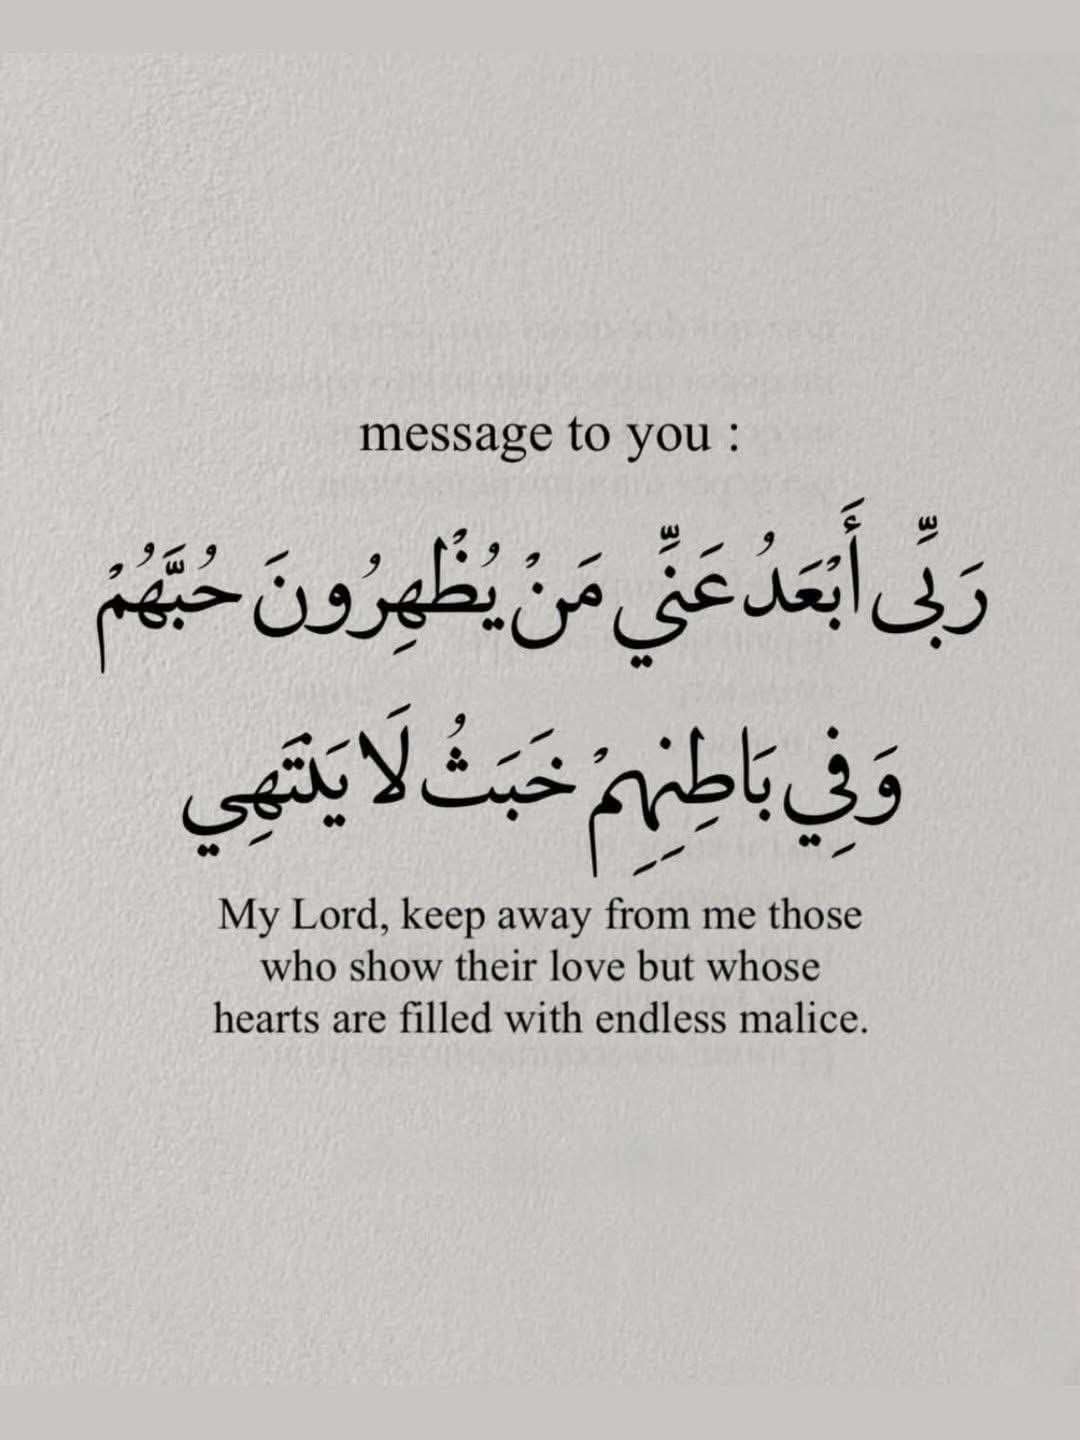 message to you :
رَبِّى أَبْعَدُ عَنِّي مَنْ يُظْهِرُونَ حُبَّهُمْ
وَفِي بَاطِنِهِمْ خَبَثُ لَا يَنْتَهِي
My Lord, keep away from me those
who show their love but whose
hearts are filled with endless malice.